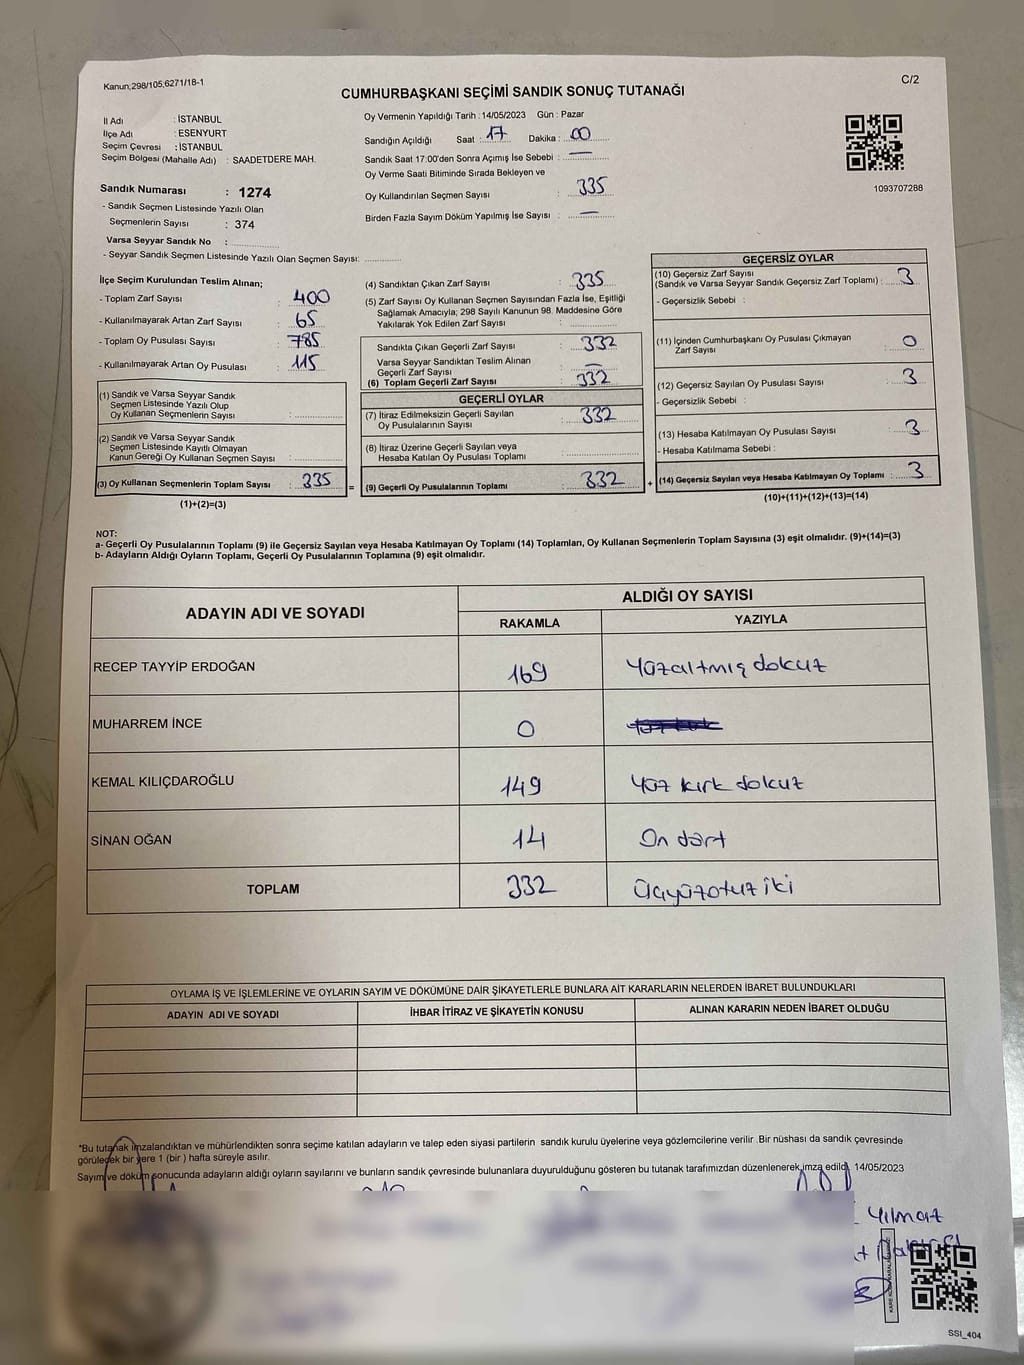 Kanun;298/105;6271/18-1
C/2
CUMHURBAŞKANI SEÇİMİ SANDIK SONUÇ TUTANAĞI
İl Adı : İSTANBUL
İlçe Adı : ESENYURT
Seçim Çevresi : İSTANBUL
Seçim Bölgesi (Mahalle Adı) : SAADETDERE MAH.
Sandık Numarası : 1274
- Sandık Seçmen Listesinde Yazılı Olan
Seçmenlerin Sayısı : 374
Varsa Seyyar Sandık No :
- Seyyar Sandık Seçmen Listesinde Yazılı Olan Seçmen Sayısı:
Oy Vermenin Yapıldığı Tarih : 14/05/2023 Gün : Pazar
Sandığın Açıldığı Saat : 17 Dakika : 00
Sandık Saat 17:00'den Sonra Açımış İse Sebebi : —
Oy Verme Saati Bitiminde Sırada Bekleyen ve
Oy Kullandırılan Seçmen Sayısı : 335
Birden Fazla Sayım Döküm Yapılmış İse Sayısı : —
1093707288
İlçe Seçim Kurulundan Teslim Alınan;
- Toplam Zarf Sayısı : 400
- Kullanılmayarak Artan Zarf Sayısı : 65
- Toplam Oy Pusulası Sayısı : 785
- Kullanılmayarak Artan Oy Pusulası : 115
(1) Sandık ve Varsa Seyyar Sandık
Seçmen Listesinde Yazılı Olup
Oy Kullanan Seçmenlerin Sayısı :
(2) Sandık ve Varsa Seyyar Sandık
Seçmen Listesinde Kayıtlı Olmayan
Kanun Gereği Oy Kullanan Seçmen Sayısı :
(3) Oy Kullanan Seçmenlerin Toplam Sayısı : 335 =
(1)+(2)=(3)
(4) Sandıktan Çıkan Zarf Sayısı : 335
(5) Zarf Sayısı Oy Kullanan Seçmen Sayısından Fazla İse, Eşitliği
Sağlamak Amacıyla; 298 Sayılı Kanunun 98. Maddesine Göre
Yakılarak Yok Edilen Zarf Sayısı :
Sandıkta Çıkan Geçerli Zarf Sayısı : 332
Varsa Seyyar Sandıktan Teslim Alınan
Geçerli Zarf Sayısı : —
(6) Toplam Geçerli Zarf Sayısı : 332
GEÇERLİ OYLAR
(7) İtiraz Edilmeksizin Geçerli Sayılan
Oy Pusulalarının Sayısı : 332
(8) İtiraz Üzerine Geçerli Sayılan veya
Hesaba Katılan Oy Pusulası Toplamı :
(9) Geçerli Oy Pusulalarının Toplamı : 332 +
GEÇERSİZ OYLAR
(10) Geçersiz Zarf Sayısı
(Sandık ve Varsa Seyyar Sandık Geçersiz Zarf Toplamı) : 3
- Geçersizlik Sebebi :
(11) İçinden Cumhurbaşkanı Oy Pusulası Çıkmayan
Zarf Sayısı : 0
(12) Geçersiz Sayılan Oy Pusulası Sayısı : 3
- Geçersizlik Sebebi :
(13) Hesaba Katılmayan Oy Pusulası Sayısı : 3
- Hesaba Katılmama Sebebi :
(14) Geçersiz Sayılan veya Hesaba Katılmayan Oy Toplamı : 3
(10)+(11)+(12)+(13)=(14)
NOT:
a- Geçerli Oy Pusulalarının Toplamı (9) ile Geçersiz Sayılan veya Hesaba Katılmayan Oy Toplamı (14) Toplamları, Oy Kullanan Seçmenlerin Toplam Sayısına (3) eşit olmalıdır. (9)+(14)=(3)
b- Adayların Aldığı Oyların Toplamı, Geçerli Oy Pusulalarının Toplamına (9) eşit olmalıdır.
ADAYIN ADI VE SOYADI
ALDIĞI OY SAYISI
RAKAMLA YAZIYLA
RECEP TAYYİP ERDOĞAN 169 Yüzaltmış dokuz
MUHARREM İNCE 0
KEMAL KILIÇDAROĞLU 149 Yüz kırk dokuz
SİNAN OĞAN 14 On dört
TOPLAM 332 Üçyüzotuz iki
OYLAMA İŞ VE İŞLEMLERİNE VE OYLARIN SAYIM VE DÖKÜMÜNE DAİR ŞİKAYETLERLE BUNLARA AİT KARARLARIN NELERDEN İBARET BULUNDUKLARI
ADAYIN ADI VE SOYADI İHBAR İTİRAZ VE ŞİKAYETİN KONUSU ALINAN KARARIN NEDEN İBARET OLDUĞU
*Bu tutanak imzalandıktan ve mühürlendikten sonra seçime katılan adayların ve talep eden siyasi partilerin sandık kurulu üyelerine veya gözlemcilerine verilir .Bir nüshası da sandık çevresinde
görülecek bir yere 1 (bir ) hafta süreyle asılır.
Sayım ve döküm sonucunda adayların aldığı oyların sayılarını ve bunların sandık çevresinde bulunanlara duyurulduğunu gösteren bu tutanak tarafımızdan düzenlenerek imza edildi. 14/05/2023
Yılmaz
SSI_404